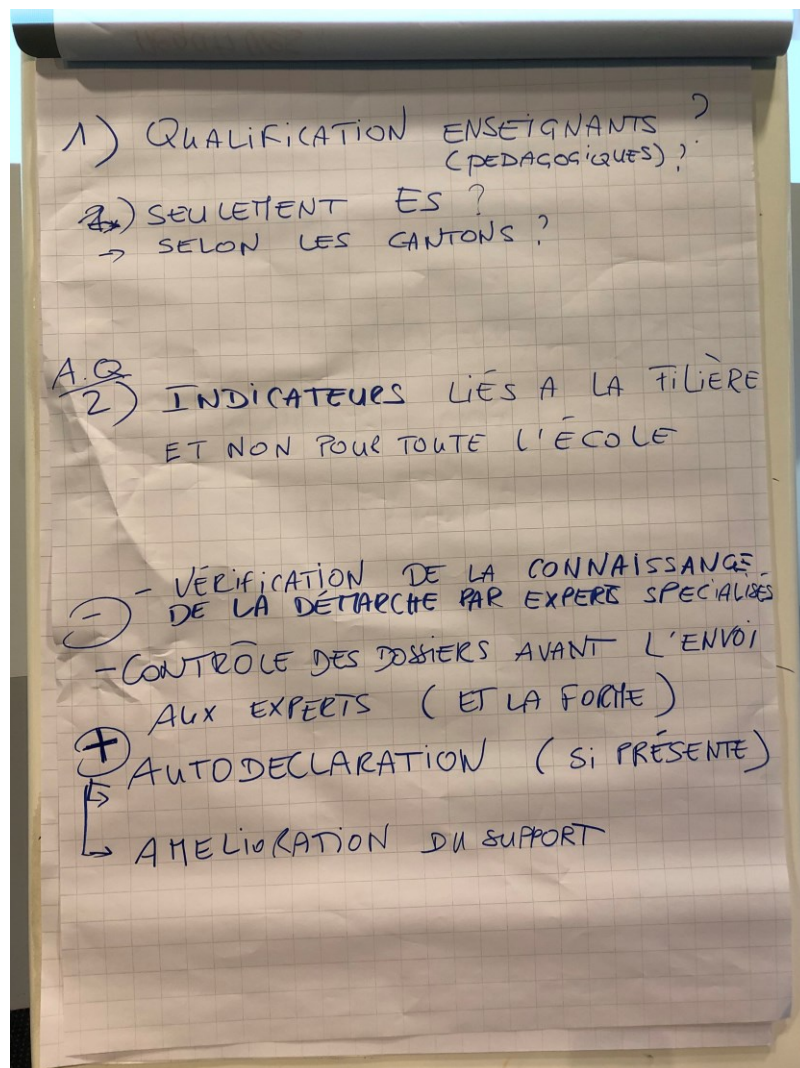 1) QUALIFICATION ENSEIGNANTS ?
(PEDAGOGIQUES) ?
2) SEULEMENT ES ?
→ SELON LES CANTONS ?
A.Q
2) INDICATEURS LIÉS A LA FILIÈRE
ET NON POUR TOUTE L'ÉCOLE
- VÉRIFICATION DE LA CONNAISSANCE
DE LA DÉMARCHE PAR EXPERTS SPECIALISÉS
- CONTRÔLE DES DOSSIERS AVANT L'ENVOI
AUX EXPERTS ( ET LA FORME )
+ AUTODECLARATION ( Si PRÉSENTE )
→ AMELIORATION DU SUPPORT